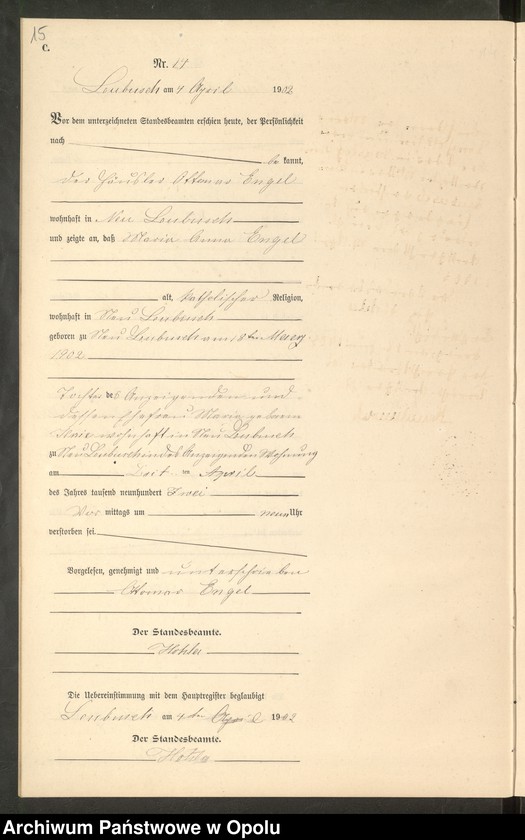 15
C.
Nr. 14
Leubusch am 4 April 1902
Vor dem unterzeichneten Standesbeamten erschien heute, der Persönlichkeit
nach
be kannt,
der Häusler Ottomar Engel
wohnhaft in Neu Leubusch
und zeigte an, daß Maria Anna Engel
alt, katholischer Religion,
wohnhaft in Neu Leubusch
geboren zu Neu Leubusch am 18ten
1902
Tochter des Anzeigenden und
dessen Ehefrau Maria geborene
wohnhaft in Neu Leubusch
zu Neu Leubusch in des Anzeigenden Wohnung
am ten April
des Jahres tausend neunhundert zwei
Vor mittags um neun Uhr
verstorben sei.
Vorgelesen, genehmigt und unterschrieben
Ottomar Engel
Der Standesbeamte.
Die Uebereinstimmung mit dem Hauptregister beglaubigt
Leubusch am 4ten April 1902
Der Standesbeamte.
Archiwum Państwowe w Opolu